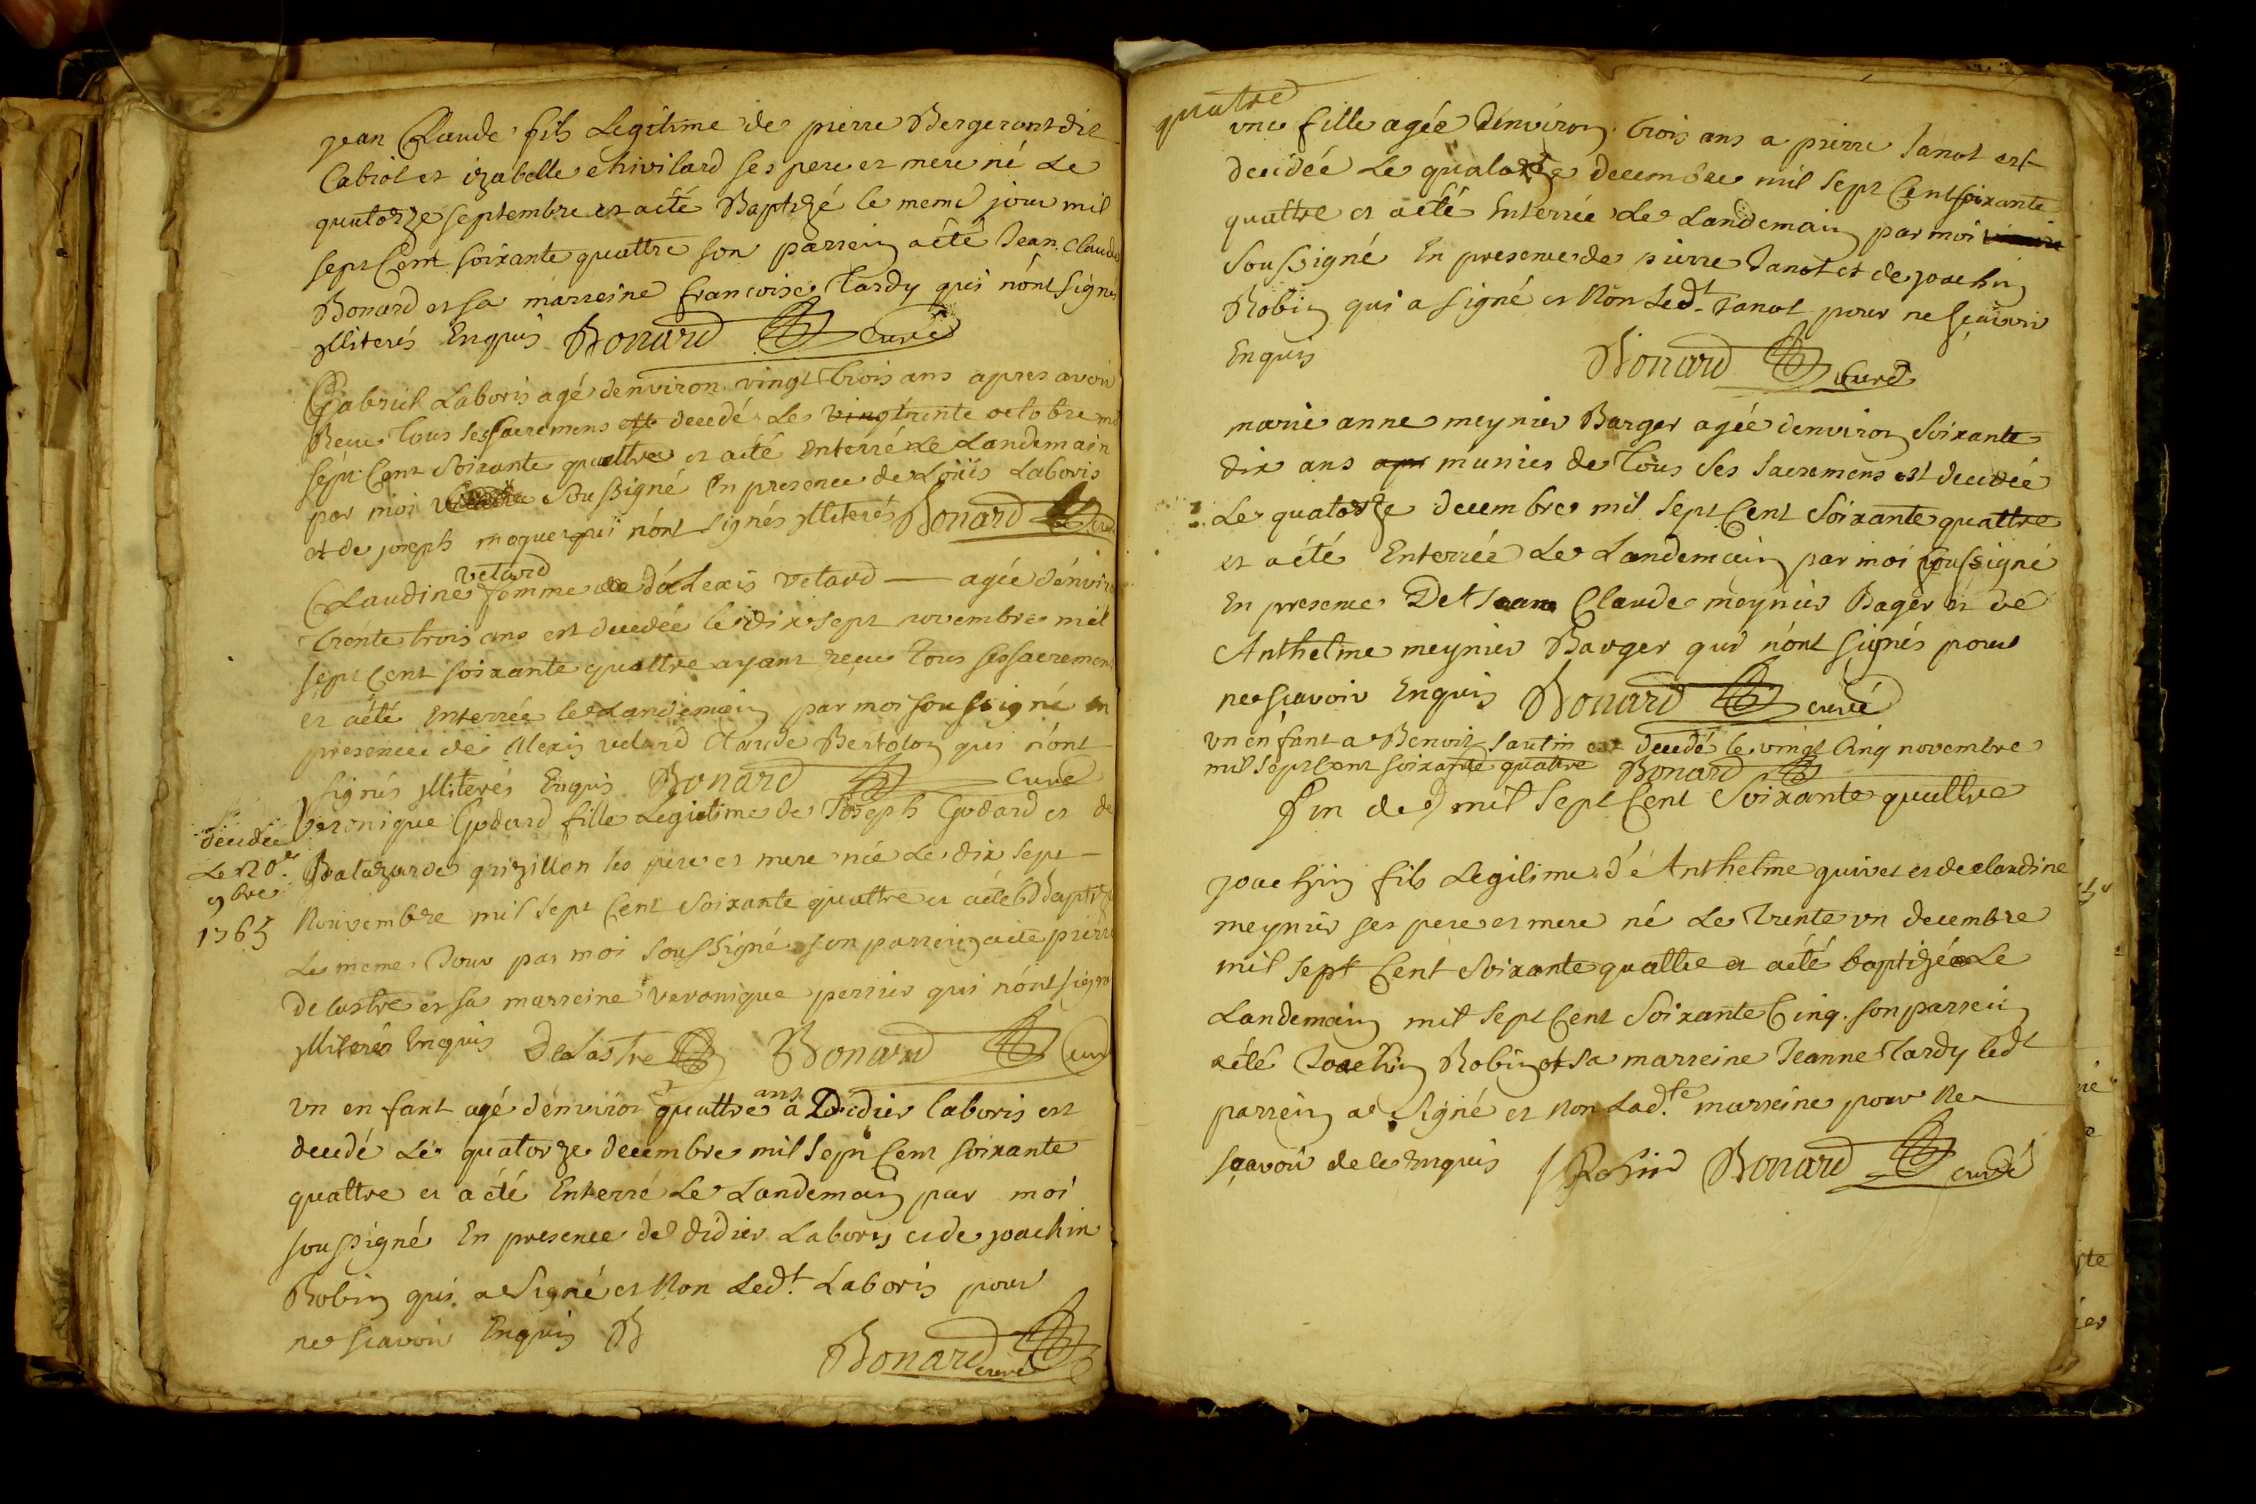 jean Claude fils Legitime de pierre Bergerant dit
Cabiot et izabelle chivilard ses pere et mere né Le
quatorze septembre et aété Baptizé le meme jour mil
sept Cent soixante quattre son parrein aété Jean Claude
Bonard et sa marreine francoise Tardy qui n'ont Signés
jlliterés Enquis Bonard Curé
Gabriel Laboris agé denviron vingt trois ans apres avoir
Recu tous ses sacremens est decedé Le vingt trente octobre mil
sept Cent Soixante quattre et aété Enterré Le Landemain
par moi Soussigné En presence de Loüis Laboris
et de joseph moquet qui n'ont signés jlliterés Bonard Curé
vetard
Claudine femme de d'aLexis vetard — agée d'environ
trente trois ans est decedée le dix sept novembre mil
sept Cent soixante quattre ayant reçu Tous ses sacremens
et aété Enterrée le Landemain par moi soussigné en
presence de Alexis vetard Claude Bertolon qui n'ont
signés jlliterés Enquis Bonard Curé
veronique Godard fille Legitime de Joseph Godard et de
decedée
Le 20e
9bre
1765
Balazarde grizillon ses pere et mere née Le dix sept —
Novembre mil sept Cent soixante quattre et aété Baptizé
Le meme Jour par moi soussigné son parrein aété pierre
delastre et sa marreine veronique perrier qui n'ont signés
jlliterés Enquis DeLastre Bonard Curé
vn enfant agé d'environ quattre ans a Didier laboris est
decedé Le quatorze decembre mil Sept Cent soixante
quattre et a été Enterré Le Landemain par moi
soussigné En presence de didier Laboris et de joachin
Robin qui a Signé et Non Ledt. Laboris pour
ne scavoir Enquis B
Bonard curé
quatre
vne fille agée d'environ trois ans a pierre Janot est
decedée Le quatorze decembre mil sept Cent soixante
quattre et aété Enterrée Le Landemain par moi
Soussigné En presence de pierre Janot et de joachin
Robin qui a signé et Non Ledt. Janot pour ne sçavoir
Enquis Bonard Curé
marie anne meynier Barger agée denviron Soixante
dix ans apr munies de Tous Ses Sacremens est decedée
Le quatorze decembre mil Sept Cent Soixante quattre
et aété Enterrée Le Landemain par moi soussigné
En presence De Jean Claude meynier Bager et de
Anthelme meynier Barger qui n'ont signés pour
ne sçavoir Enquis Bonard curé
vn enfant a Benoit Sautin est decedé le vingt Cinq novembre
mil Sept Cent soixante quattre Bonard
fin de mil Sept Cent Soixante quattre
joachin fils Legitime d'Anthelme quivet et de claudine
meynier ses pere et mere né Le Trente vn decembre
mil sept Cent Soixante quattre et aété baptizé Le
Landemain mil Sept Cent Soixante Cinq. son parrein
aété Joachin Robin et sa marreine Jeanne Tardy ledt
parrein a Signé et Non Ladte. marreine pour Ne
sçavoir de le Enquis J Robin Bonard curé